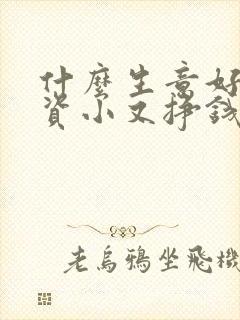 什麼生意好
資小又掙錢
老烏鴉坐飛機